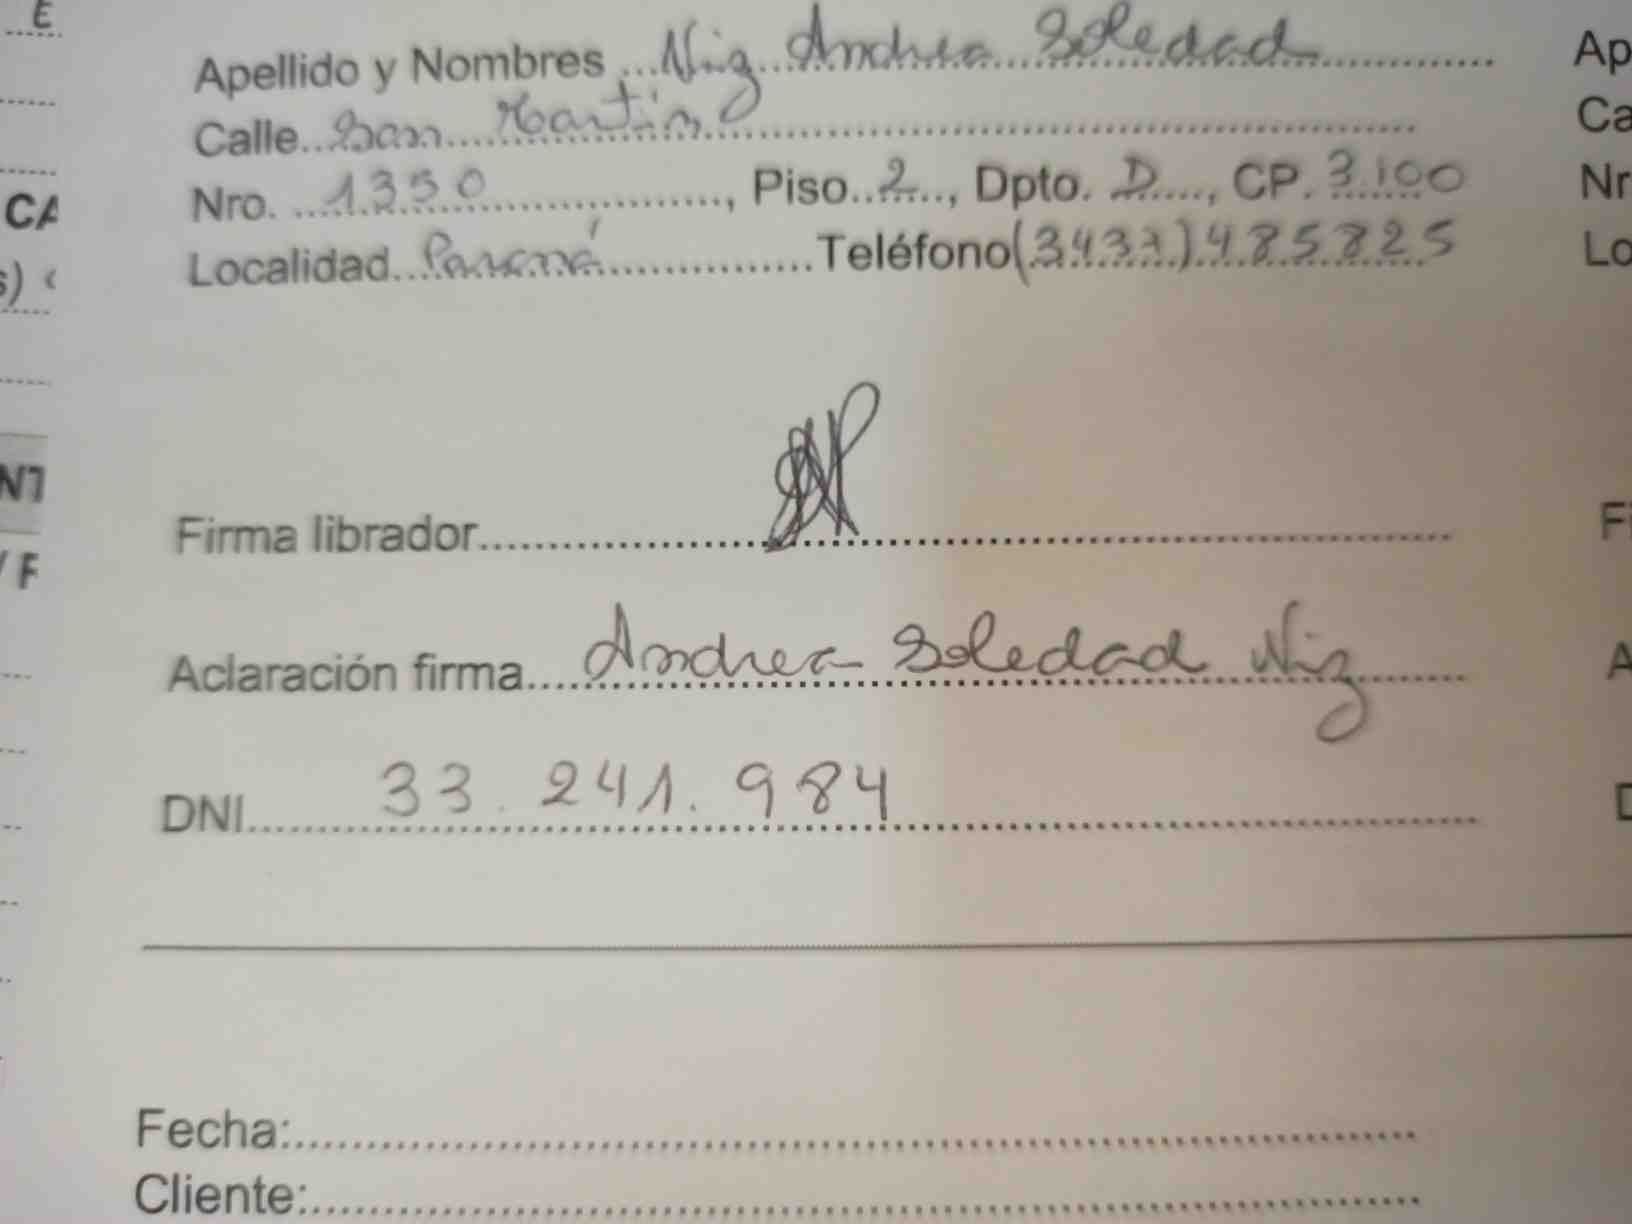 E
Apellido y Nombres ... Niz Andrea Soledad
Calle.. San Martin
Nro. 1350, Piso 2, Dpto. D, CP. 3.100
Localidad Paraná Teléfono (3437) 485825
Firma librador
Aclaración firma Andrea Soledad Niz
DNI 33.241.984
Fecha:
Cliente:
CA
s)
NT
/ F
Ap
Ca
Nr
Lo
Fi
A
D